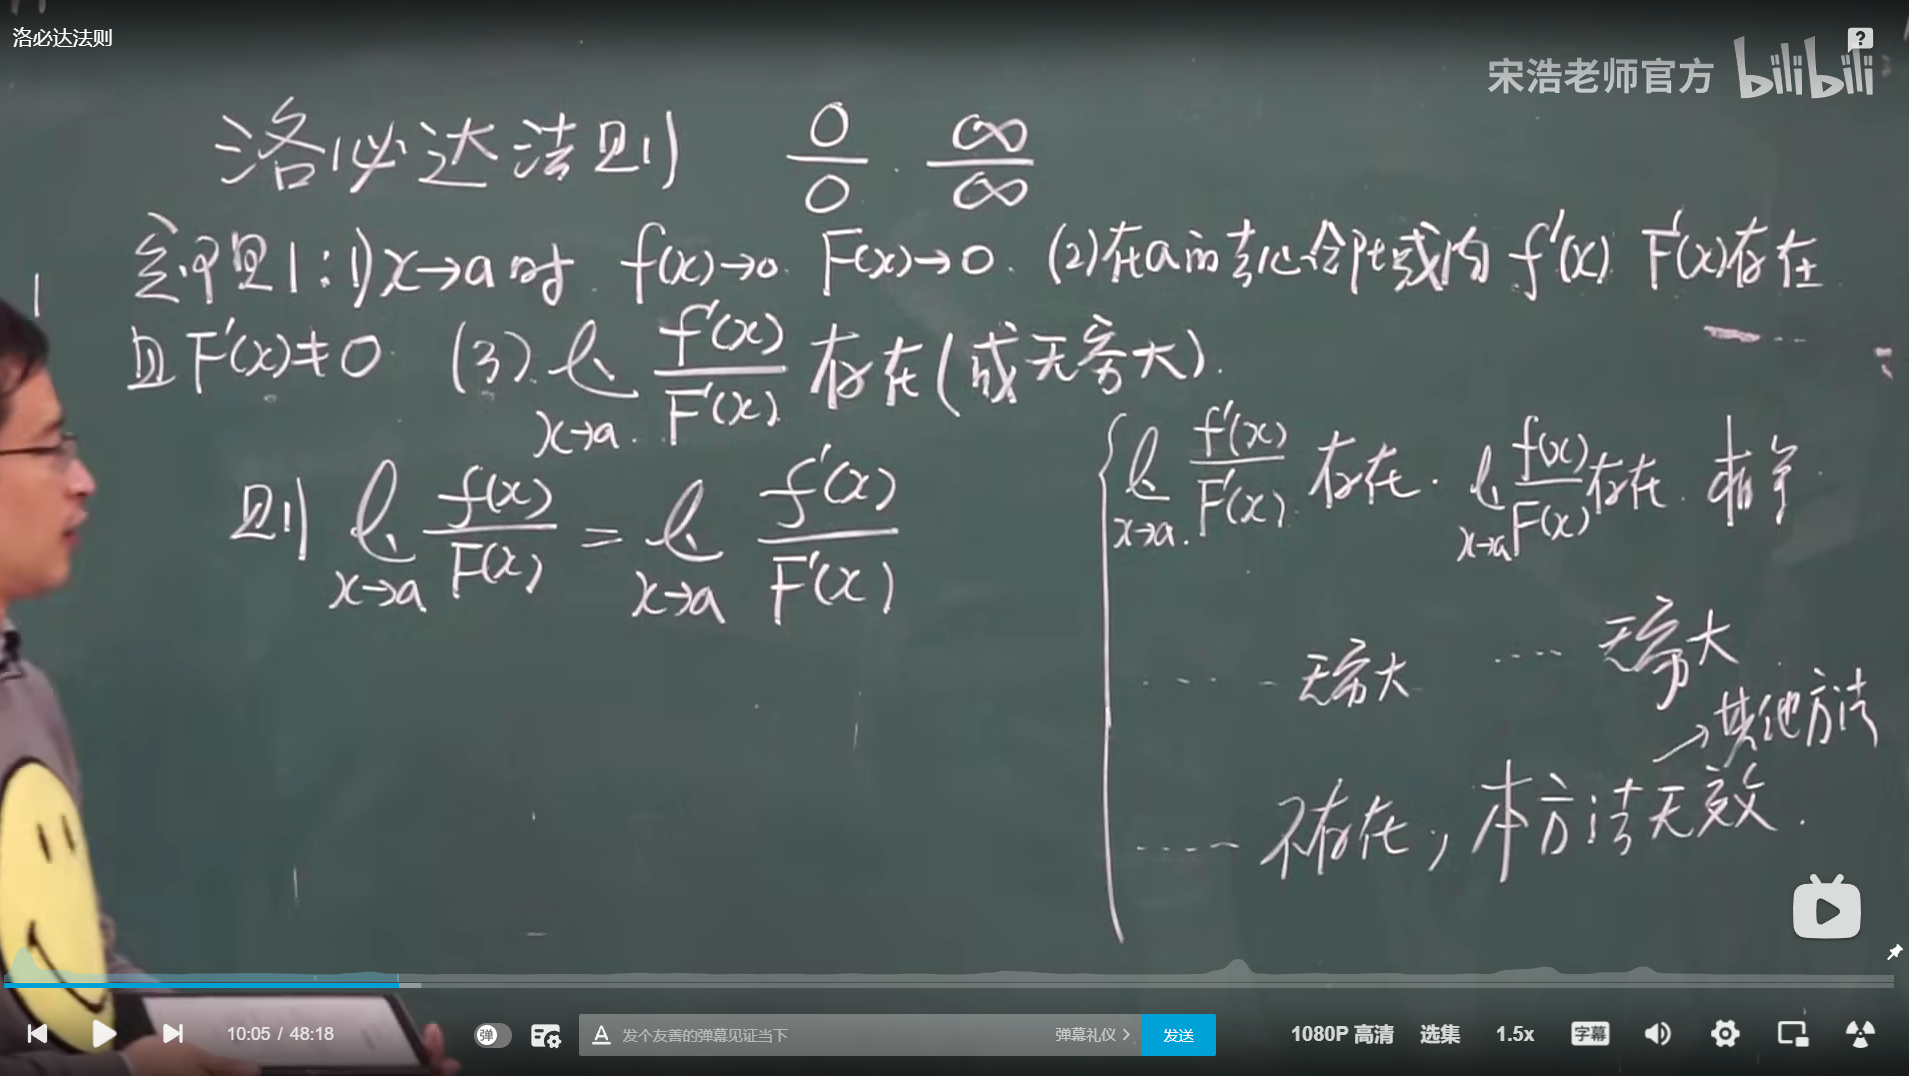 洛必达法则
宋浩老师官方 bilibili
洛必达法则 0/0 . ∞/∞
定理1:1) x→a时 f(x)→0. F(x)→0. (2)在a的去心邻域内 f'(x) F'(x)存在
且F'(x)≠0 (3). lim x→a f'(x)/F'(x) 存在(或无穷大).
则 lim x→a f(x)/F(x) = lim x→a f'(x)/F'(x)
lim x→a. f'(x)/F'(x) 存在. lim x→a f(x)/F(x) 存在. 相等.
..... 无穷大 .... 无穷大
→其他方法
..... 不存在, 本方法无效.
10:05 / 48:18
弹
A 发个友善的弹幕见证当下 弹幕礼仪 > 发送
1080P 高清 选集 1.5x 字幕